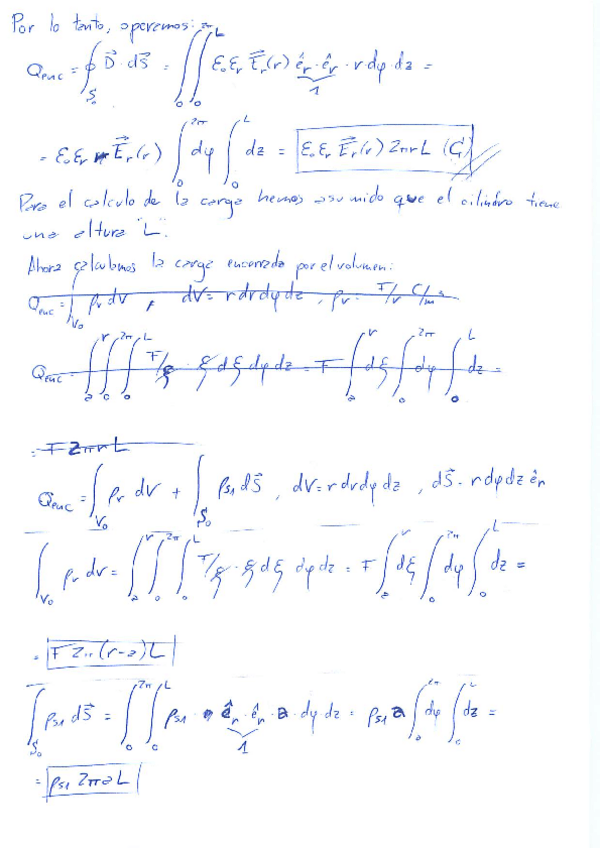 Por lo tanto, operemos:
Qenc = ∮_{S₀} D⃗ · dS⃗ = ∫₀^{2π} ∫₀^{L} ε₀ εr E⃗r(r) êr · êr · r dφ dz =
1
= ε₀ εr r E⃗r(r) ∫₀^{2π} dφ ∫₀^{L} dz = ε₀ εr E⃗r(r) 2πrL (C)
Para el calculo de la carga hemos asumido que el cilindro tiene
una altura "L".
Ahora calculamos la carga encerrada por el volumen:
Qenc = ∫_{V₀} ρv dV , dV = r dr dφ dz , ρv = F/r C/m³
Qenc = ∫ₐ^{r} ∫₀^{2π} ∫₀^{L} F/ξ · ξ dξ dφ dz = F ∫ₐ^{r} dξ ∫₀^{2π} dφ ∫₀^{L} dz =
= F 2πrL
Qenc = ∫_{V₀} ρv dV + ∫_{S₀} ρs1 dS⃗ , dV = r dr dφ dz , dS⃗ = r dφ dz êr
∫_{V₀} ρv dV = ∫ₐ^{r} ∫₀^{2π} ∫₀^{L} F/ξ · ξ dξ dφ dz = F ∫ₐ^{r} dξ ∫₀^{2π} dφ ∫₀^{L} dz =
= F 2π(r-a)L
∫_{S₀} ρs1 dS⃗ = ∫₀^{2π} ∫₀^{L} ρs1 · êr · êr · a · dφ dz = ρs1 a ∫₀^{2π} dφ ∫₀^{L} dz =
1
= ρs1 2πaL